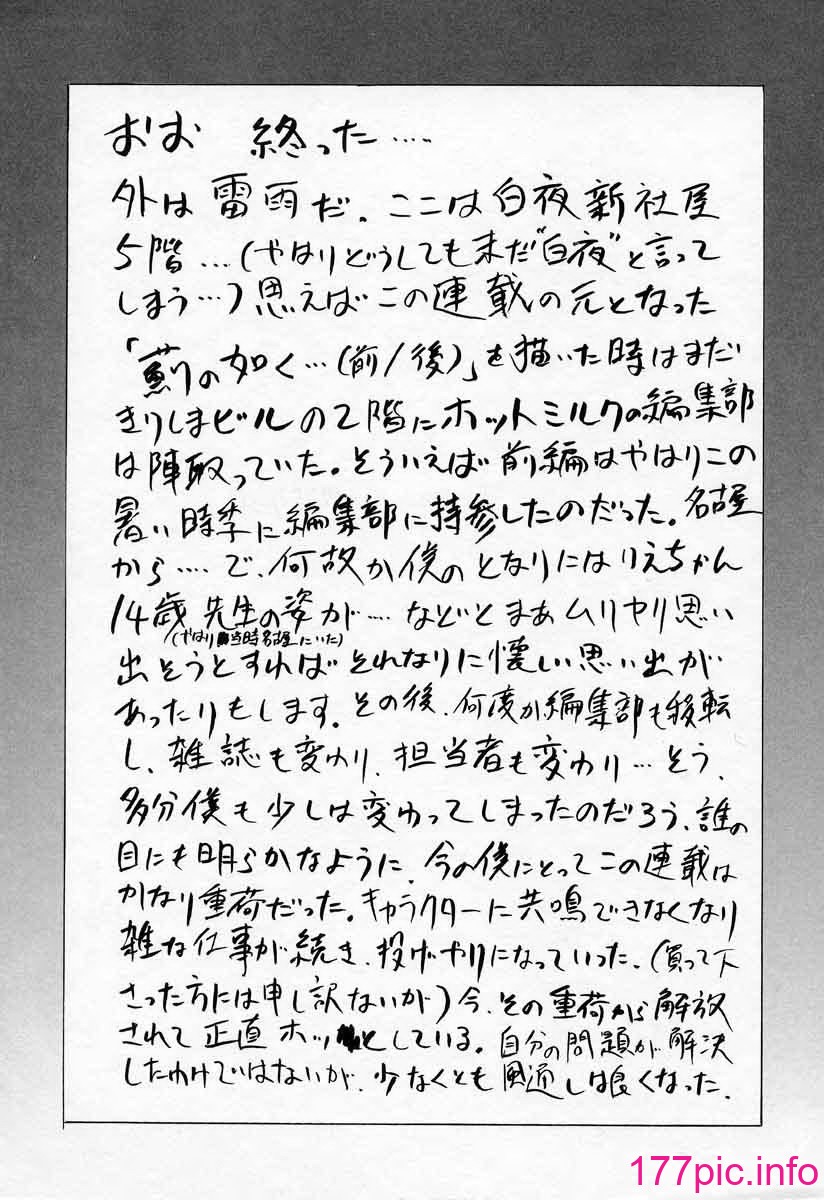 おお 終った….
外は雷雨だ、ここは白夜新社屋
5階…(やはりどうしてもまだ"白夜"と言って
しまう…)思えばこの連載の元となった
「薊の如く…(前/後)」を描いた時はまだ
きりしまビルの2階にホットミルクの編集部
は陣取っていた。そういえば前編はやはりこの
暑い時季に編集部に持参したのだった。名古屋
から….で、何故か僕のとなりにはりえちゃん
14歳先生の姿が…などとまあムリヤリ思い
(やはり当時名古屋にいた)
出そうとすればそれなりに懐しい思い出が
あったりもします。その後、何度か編集部も移転
し、雑誌も変わり、担当者も変わり…そう、
多分僕も少しは変わってしまったのだろう、誰の
目にも明らかなように、今の僕にとってこの連載は
かなり重荷だった。キャラクターに共鳴できなくなり
雑な仕事が続き、投げやりになっていった、(買って下
さった方には申し訳ないが)今、その重荷から解放
されて正直ホッとしている。自分の問題が解決
したわけではないが、少なくとも風通しは良くなった、
177pic.info